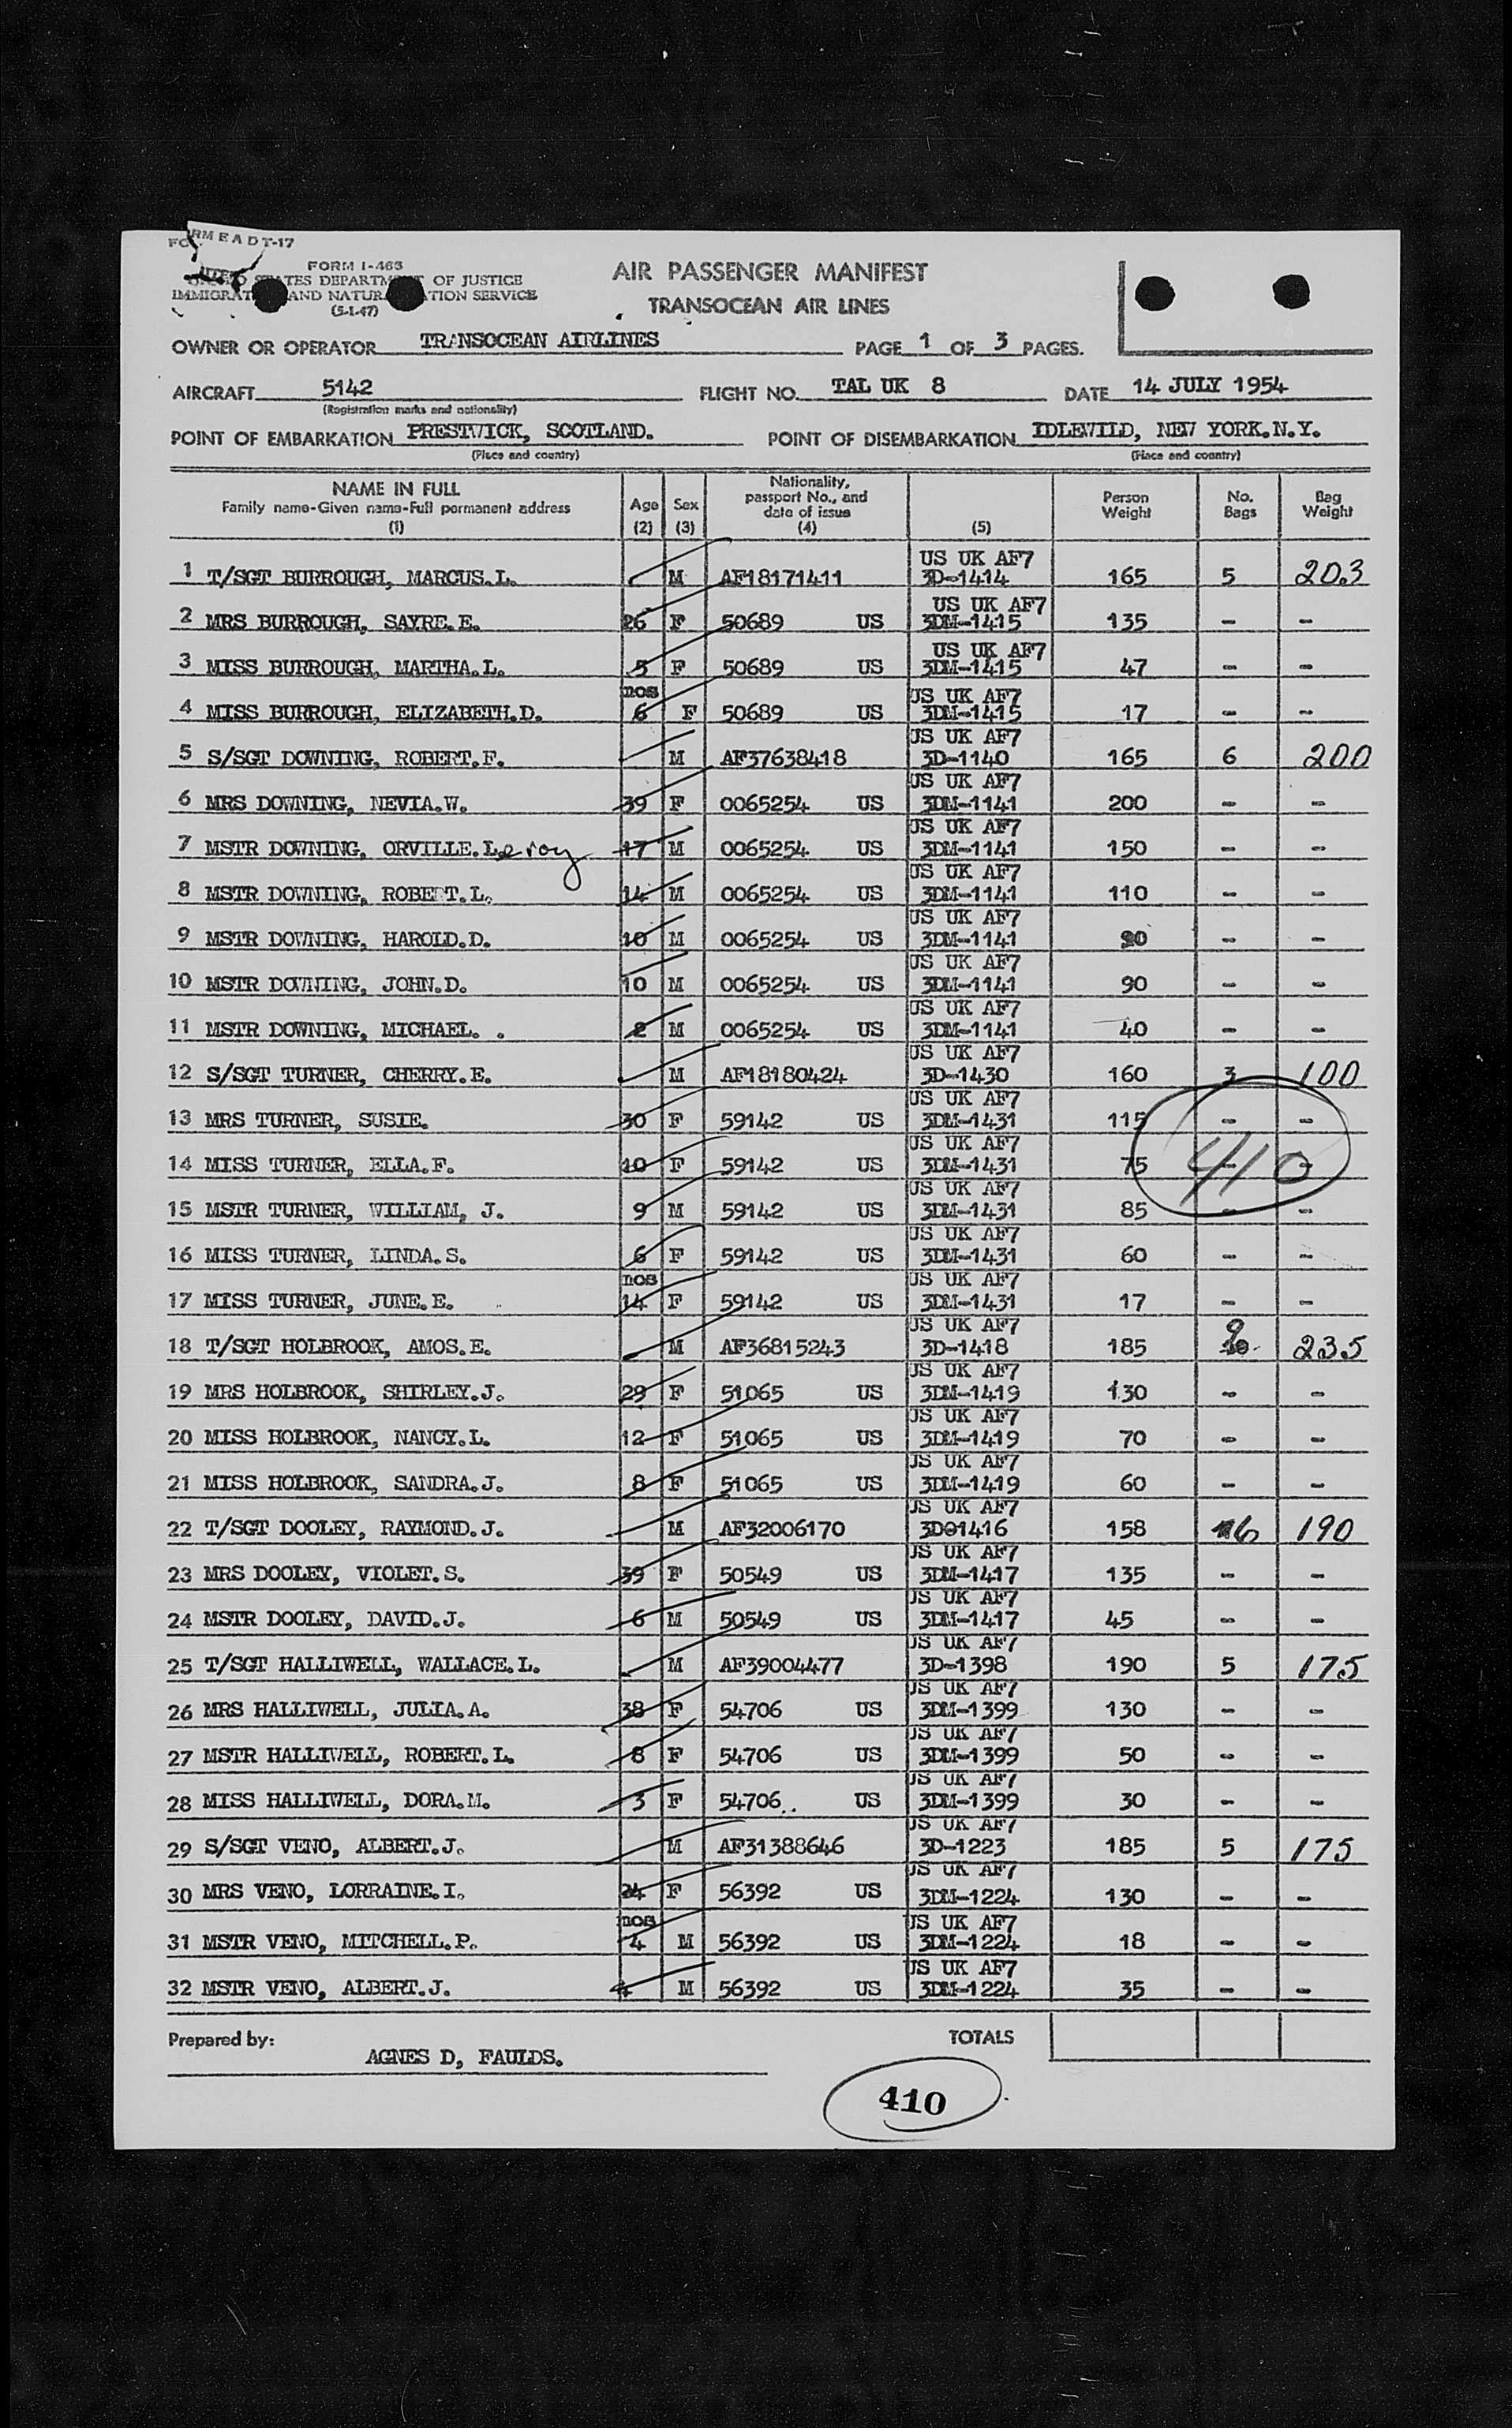 FORM E A D T-17
FORM I-465
UNITED STATES DEPARTMENT OF JUSTICE
IMMIGRATION AND NATURALIZATION SERVICE
(5-1-47)
AIR PASSENGER MANIFEST
TRANSOCEAN AIR LINES
OWNER OR OPERATOR TRANSOCEAN AIRLINES PAGE 1 OF 3 PAGES.
AIRCRAFT 5142 FLIGHT NO. TAL UK 8 DATE 14 JULY 1954
(Registration marks and nationality)
POINT OF EMBARKATION PRESTWICK, SCOTLAND. POINT OF DISEMBARKATION IDLEWILD, NEW YORK.N.Y.
(Place and country) (Place and country)
NAME IN FULL
Family name-Given name-Full permanent address
(1)
Age
(2)
Sex
(3)
Nationality,
passport No., and
date of issue
(4)
(5)
Person
Weight
No.
Bags
Bag
Weight
US UK AF7
1 T/SGT BURROUGH, MARCUS.L. M AF18171411 3D-1414 165 5 203
US UK AF7
2 MRS BURROUGH, SAYRE.E. 26 F 50689 US 3DM-1415 135 - -
US UK AF7
3 MISS BURROUGH, MARTHA.L. 5 F 50689 US 3DM-1415 47 - -
mos US UK AF7
4 MISS BURROUGH, ELIZABETH.D. 6 F 50689 US 3DM-1415 17 - -
US UK AF7
5 S/SGT DOWNING, ROBERT.F. M AF37638418 3D-1140 165 6 200
US UK AF7
6 MRS DOWNING, NEVIA.W. 39 F 0065254 US 3DM-1141 200 - -
US UK AF7
7 MSTR DOWNING. ORVILLE.Leroy 17 M 0065254 US 3DM-1141 150 - -
US UK AF7
8 MSTR DOWNING, ROBERT.L. 14 M 0065254 US 3DM-1141 110 - -
US UK AF7
9 MSTR DOWNING, HAROLD.D. 10 M 0065254 US 3DM-1141 90 - -
US UK AF7
10 MSTR DOWNING, JOHN.D. 10 M 0065254 US 3DM-1141 90 - -
US UK AF7
11 MSTR DOWNING, MICHAEL. . 2 M 0065254 US 3DM-1141 40 - -
US UK AF7
12 S/SGT TURNER, CHERRY.E. M AF18180424 3D-1430 160 3 100
US UK AF7
13 MRS TURNER, SUSIE. 30 F 59142 US 3DM-1431 115 - -
US UK AF7
14 MISS TURNER, ELLA.F. 10 F 59142 US 3DM-1431 75 410
US UK AF7
15 MSTR TURNER, WILLIAM, J. 9 M 59142 US 3DM-1431 85 - -
US UK AF7
16 MISS TURNER, LINDA.S. 6 F 59142 US 3DM-1431 60 - -
mos US UK AF7
17 MISS TURNER, JUNE.E. 14 F 59142 US 3DM-1431 17 - -
US UK AF7
18 T/SGT HOLBROOK, AMOS.E. M AF36815243 3D-1418 185 9 235
US UK AF7
19 MRS HOLBROOK, SHIRLEY.J. 29 F 51065 US 3DM-1419 130 - -
US UK AF7
20 MISS HOLBROOK, NANCY.L. 12 F 51065 US 3DM-1419 70 - -
US UK AF7
21 MISS HOLBROOK, SANDRA.J. 8 F 51065 US 3DM-1419 60 - -
US UK AF7
22 T/SGT DOOLEY, RAYMOND.J. M AF32006170 3D01416 158 6 190
US UK AF7
23 MRS DOOLEY, VIOLET.S. 39 F 50549 US 3DM-1417 135 - -
US UK AF7
24 MSTR DOOLEY, DAVID.J. 6 M 50549 US 3DM-1417 45 - -
US UK AF7
25 T/SGT HALLIWELL, WALLACE.L. M AF39004477 3D-1398 190 5 175
US UK AF7
26 MRS HALLIWELL, JULIA.A. 38 F 54706 US 3DM-1399 130 - -
US UK AF7
27 MSTR HALLIWELL, ROBERT.L. 8 F 54706 US 3DM-1399 50 - -
US UK AF7
28 MISS HALLIWELL, DORA.M. 3 F 54706.. US 3DM-1399 30 - -
US UK AF7
29 S/SGT VENO, ALBERT.J. M AF31388646 3D-1223 185 5 175
US UK AF7
30 MRS VENO, LORRAINE.I. 24 F 56392 US 3DM-1224 130 - -
mos US UK AF7
31 MSTR VENO, MITCHELL.P. 4 M 56392 US 3DM-1224 18 - -
US UK AF7
32 MSTR VENO, ALBERT.J. 4 M 56392 US 3DM-1224 35 - -
Prepared by: TOTALS
AGNES D, FAULDS.
410